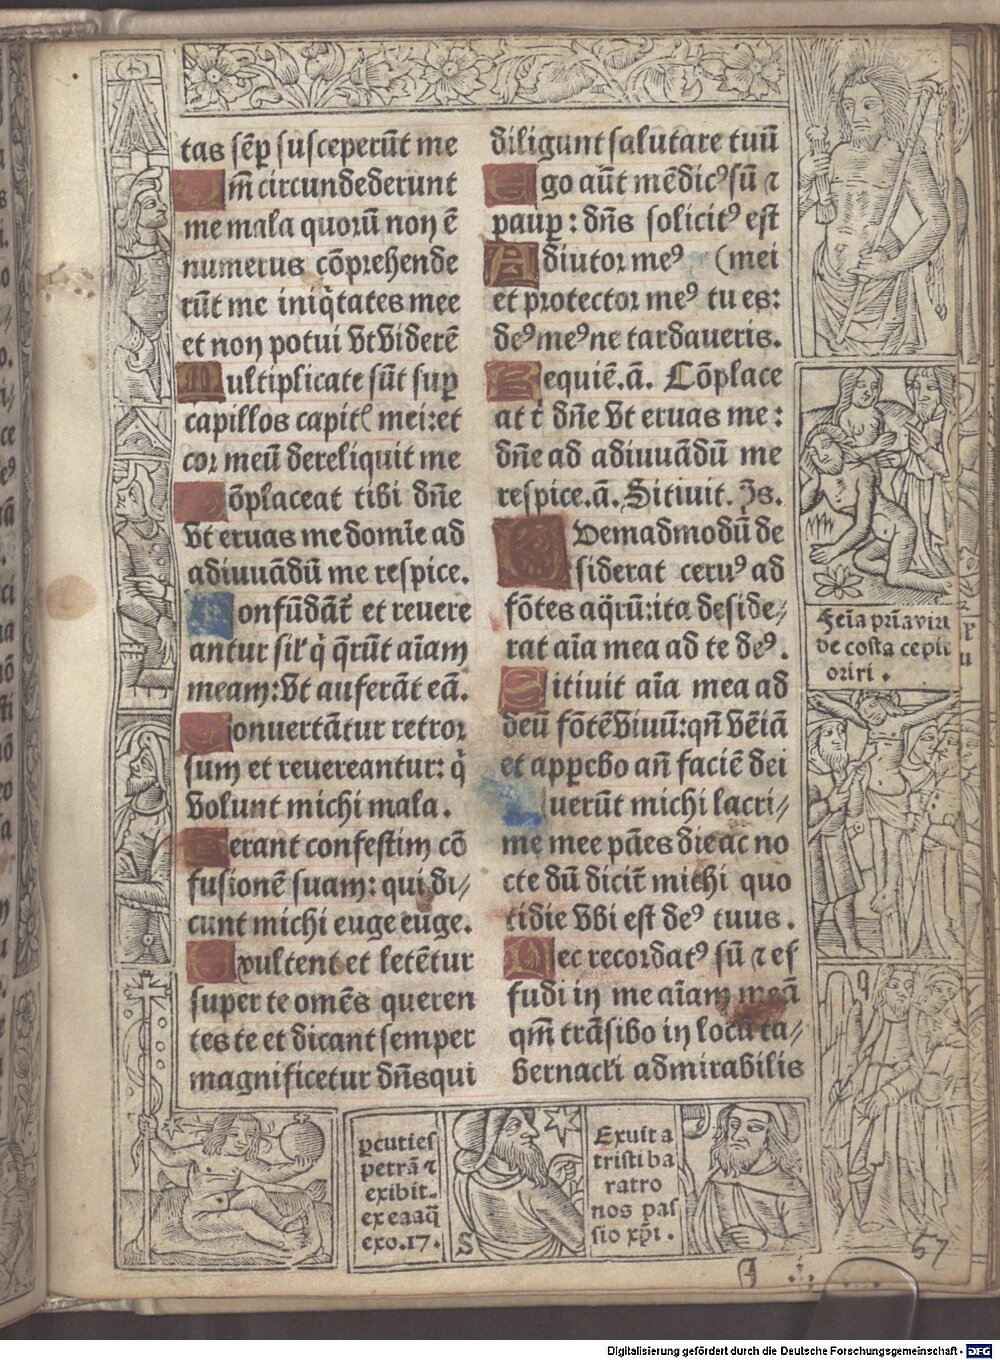 tas sēꝑ susceperūt me
Qm̄ circundederunt
me mala quorū non ē
numerus cōprehende
rūt me iniq̇tates mee
et non potui vt viderē
Multiplicate sūt suꝑ
capillos capitꝭ mei: et
cor meū dereliquit me
Cōplaceat tibi dn̄e
vt eruas me domīe ad
adiuuādū me respice.
Confūdāt̄ et reuere
antur sil' q̇ q̄rūt aīam
meam: vt auferāt eā.
Conuertātur retror
sum et reuereantur: q̇
volunt michi mala.
Ferant confestim cō
fusionē suam: qui di/
cunt michi euge euge.
Exultent et letētur
super te omēs queren
tes te et dicant semper
magnificetur dn̄s qui
diligunt salutare tuū
Ego aūt mēdicꝰ sū ⁊
pauꝑ: dn̄s solicitꝰ est
Adiutor meꝰ (mei
et protector meꝰ tu es:
deꝰ meꝰ ne tardaueris.
Requiē. ā. Cōplace
at t̄ dn̄e vt eruas me:
dn̄e ad adiuuādū me
respice. ā. Sitiuit. ps.
Quemadmodū de
siderat ceruꝰ ad
fōtes aq̄rū: ita deside/
rat aīa mea ad te deꝰ.
Sitiuit aīa mea ad
deū fōtē viuū: qn̄ vēiā
et apꝑebo an̄ faciē dei
uerūt michi lacri/
me mee pāes die ac no
cte dū dicit̄ michi quo
tidie vbi est deꝰ tuus.
Hec recordatꝰ sū ⁊ ef
fudi in me aīam meā
qm̄ trāsibo in locū ta/
bernacl'i admirabilis
de costa cepit
oriri.
ꝑcuties
petrā ⁊
exibit
ex ea aq̄
exo.17.
Exuit a
tristi ba
ratro
nos pas
sio xp̄i.
57
Digitalisierung gefördert durch die Deutsche Forschungsgemeinschaft - DFG